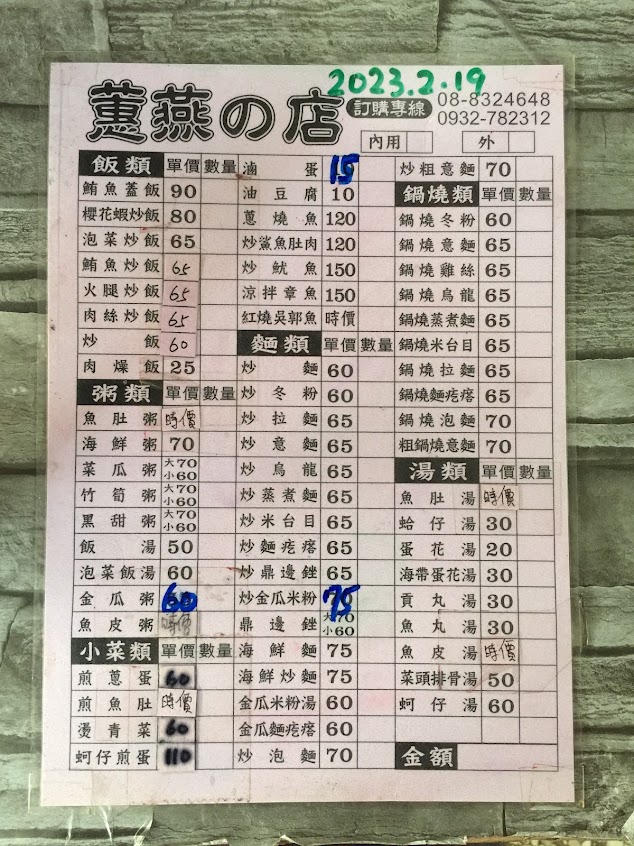 2023.2.19
蕙燕の店
訂購專線
08-8324648
0932-782312
內用
外
飯類 單價 數量
鮪魚蓋飯 90
櫻花蝦炒飯 80
泡菜炒飯 65
鮪魚炒飯 65
火腿炒飯 65
肉絲炒飯 65
炒飯 60
肉燥飯 25
粥類 單價 數量
魚肚粥 時價
海鮮粥 70
菜瓜粥 大70 小60
竹筍粥 大70 小60
黑甜粥 大70 小60
飯湯 50
泡菜飯湯 60
金瓜粥 60
魚皮粥 時價
小菜類 單價 數量
煎蔥蛋 60
煎魚肚 時價
燙青菜 60
蚵仔煎蛋 110
滷蛋 15
油豆腐 10
蔥燒魚 120
炒鯊魚肚肉 120
炒魷魚 150
涼拌章魚 150
紅燒吳郭魚 時價
麵類 單價 數量
炒麵 60
炒冬粉 60
炒拉麵 65
炒意麵 65
炒烏龍 65
炒蒸煮麵 65
炒米台目 65
炒麵疙瘩 65
炒鼎邊銼 65
炒金瓜米粉 75
鼎邊銼 大70 小60
海鮮麵 75
海鮮炒麵 75
金瓜米粉湯 60
金瓜麵疙瘩 60
炒泡麵 70
炒粗意麵 70
鍋燒類 單價 數量
鍋燒冬粉 60
鍋燒意麵 65
鍋燒雞絲 65
鍋燒烏龍 65
鍋燒蒸煮麵 65
鍋燒米台目 65
鍋燒拉麵 65
鍋燒麵疙瘩 65
鍋燒泡麵 70
粗鍋燒意麵 70
湯類 單價 數量
魚肚湯 時價
蛤仔湯 30
蛋花湯 20
海帶蛋花湯 30
貢丸湯 30
魚丸湯 30
魚皮湯 時價
菜頭排骨湯 50
蚵仔湯 60
金額